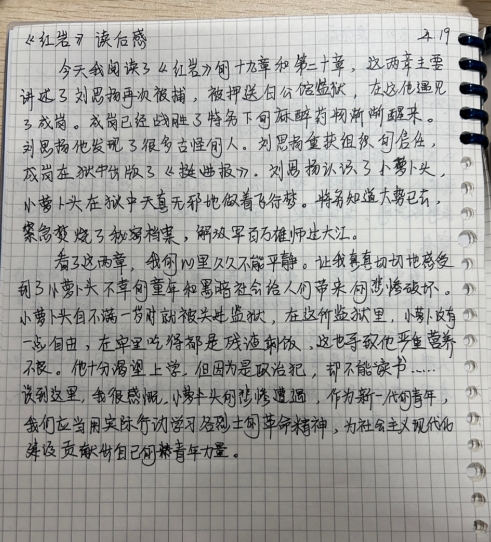 《红岩》读后感 2.19
今天我阅读了《红岩》的十九章和第二十章，这两章主要
讲述了刘思扬再次被捕，被押送白公馆监狱，在这他遇见
了成岗。成岗已经战胜了特务下的麻醉药物渐渐醒来。
刘思扬他发现了很多古怪的人。刘思扬重获组织的信任，
成岗在狱中出版了《挺进报》。刘思扬认识了小萝卜头，
小萝卜头在狱中天真无邪地做着飞行梦。特务知道大势已去，
紧急焚烧了秘密档案，解放军百万雄师过大江。
看了这两章，我的心里久久不能平静。让我真真切切地感受
到了小萝卜头不幸的童年和黑暗社会给人们带来的悲惨破坏。
小萝卜头自不满一岁时就被关进监狱，在这所监狱里，小萝卜没有
一点自由，在牢里吃得都是残渣剩饭，这也导致他严重营养
不良。他十分渴望上学，但因为是政治犯，却不能读书……
读到这里，我很感慨，小萝卜头的悲惨遭遇，作为新一代的青年，
我们应当用实际行动学习各烈士的革命精神，为社会主义现代化
建设贡献出自己的青年力量。